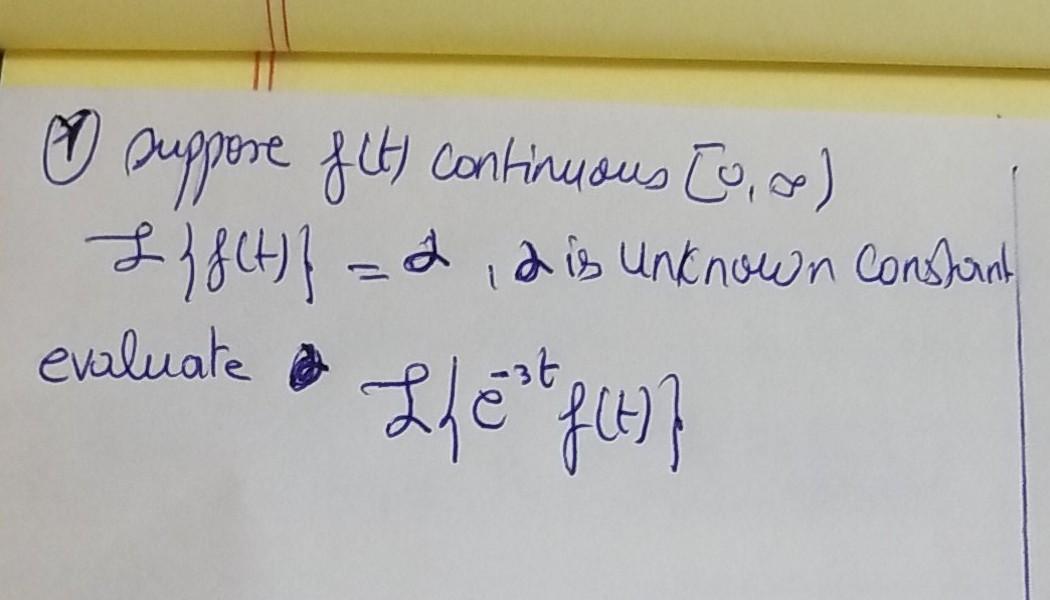 ① suppose f(t) continuous [0, ∞)
ℒ{f(t)} = α , α is unknown constant
evaluate ℒ{e⁻³ᵗ f(t)}